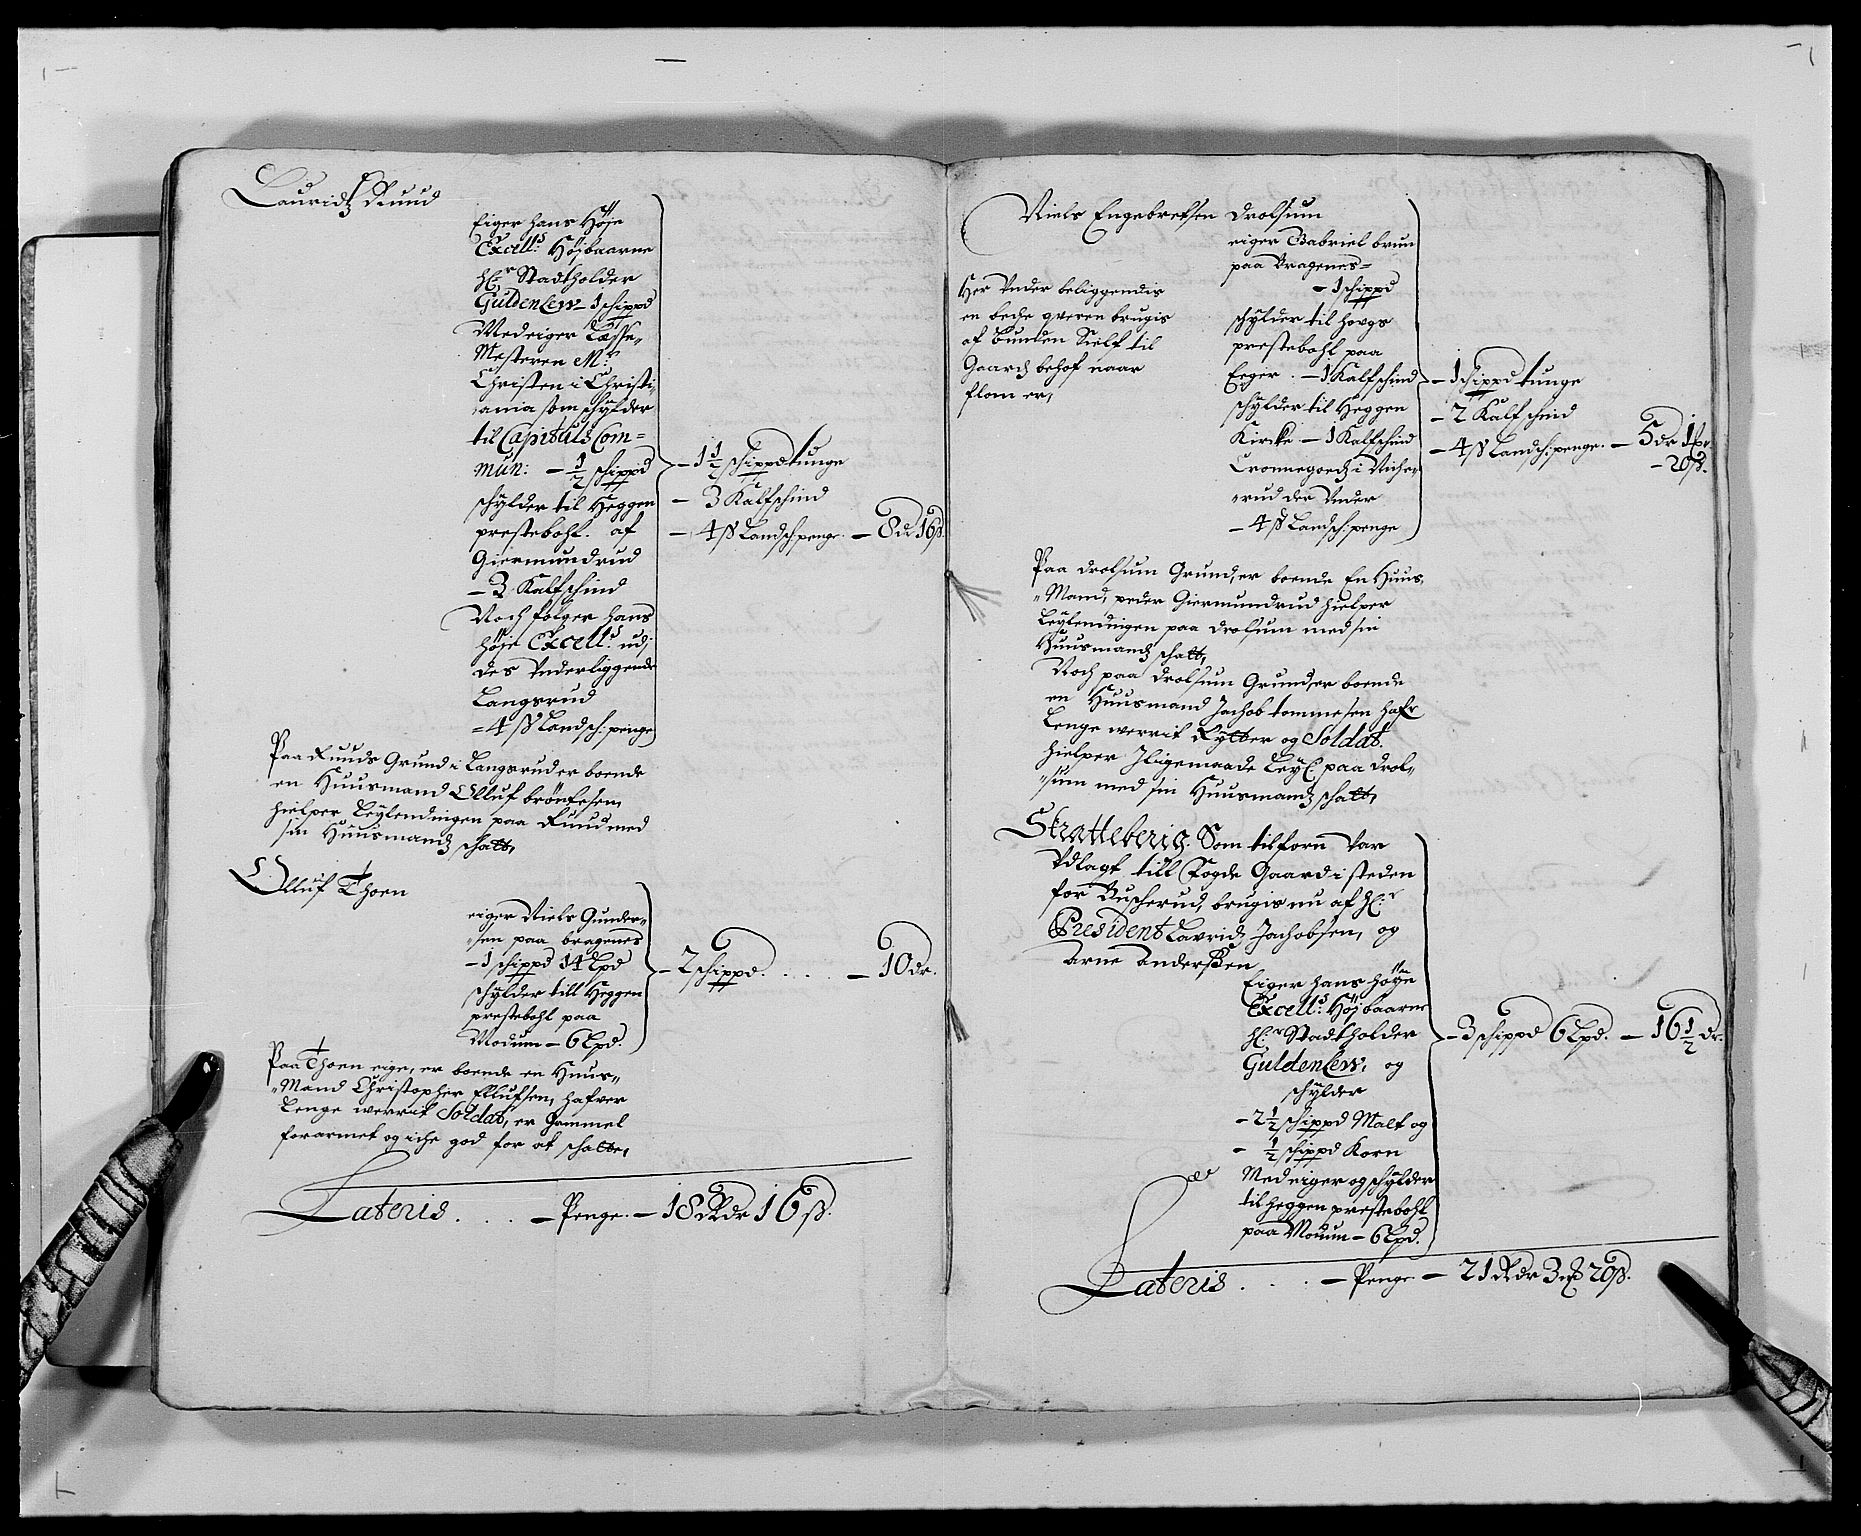 Lauridtz Ruud
Eiger hans Høje
Excell:s Højbaarne
H:r Stadtholder
Guldenlew – 1 schippd
Medeiger Læsse„
Mesteren Mr
Christen i Christi„
„ania som schylder
til Capituls Com=
mun: – ½ schippd
schylder til Heggen
prestebohl. af
Giermundrud
– 3 Kalfschind
Noch følger hans
høje Excell:s ud„
des Vnderliggende
Langsrud
= 4 ß Landsch: penge
– 1½ schippd tunge
– 3 Kalfschind
– 4 ß Landsch: penge. – 8 dr 16 ß.
Paa Ruuds Grund i Langsrud er boende
en Huusmand Olluf brönsesen,
hielper Leylendingen paa Ruud med
sin Huusmandz schatt,
Olluf Thoen
eiger Niels Gunder„
„sen paa bragenes
– 1 schippd 14 Lpd
schylder till Heggen
prestebohl paa
Modum – 6 Lpd.
– 2 schippd. . . . . – 10 dr.
Paa Thoen eige, er boende en Huus„
„Mand Christopher Ellufsen, hafver
Lenge werrit Soldat, er Gammel
forarmet og iche god for at schatte,
Lateris . . . – Penge. – 18 Rdr 16 ß.
Niels Engebretsen Drolsum
eiger Gabriel brun
paa Bragenes =
– 1 schippd
Her Vnder beliggendis
en beche qveren brugis
af bunden Sielf til
Gaardz behof naar
flom er,
schylder til hougs
prestebohl paa
Eger. – 1 Kalfschind
schylder til Heggen
Kircke – 1 Kalfschind
Cronnegodz i Viche„
„rud der Vnder
– 4 ß Landsch: penge
– 1 schippd tunge
– 2 Kalfschind
– 4 ß Landsch: penge. – 5 dr 1 ort
– 20 ß.
Paa Drolsum Grund, er boende En Huus„
„Mand, peder Giermundrud hielper
Leylendingen paa Drolsum med sin
Huusmandz schatt,
Noch paa Drolsum Grund, er boende
en Huusmand Jachob tommesen hafr
Lenge werrit Rytter og Soldat.
hielper Jligemaade Leyl: paa Drol„
„sum med sin Huusmandz schatt,
Skratteberig. Som tilforn Var
Vdlagt till Fogde Gaard i steden
for Buscherud, brugis nu af H:r
President Lavridz Jachobsen, og
Arne Anderssen
Eiger hans høye
Excell:s Højbaarne
H:r Stadtholder
Guldenlew, og
schylder
– 2½ schippd Malt og
– ½ schippd Korn
Medeiger og schylder
til Heggen prestebohl
paa Modum – 6 Lpd.
– 3 schippd 6 Lpd. – 16½ dr.
Lateris . . . – Penge – 21 Rdr 3 ort 20 ß.